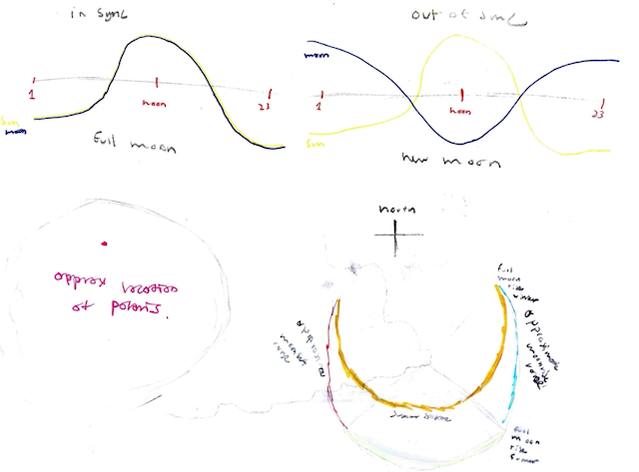 in sync
out of sync
moon
1
noon
23
sun
moon
full moon
1
noon
23
sun
new moon
north
approx location
of polaris.
full
moon
rise
winter
approximate
moonrise
range
approx
moonset
range
full
moon
rise
summer